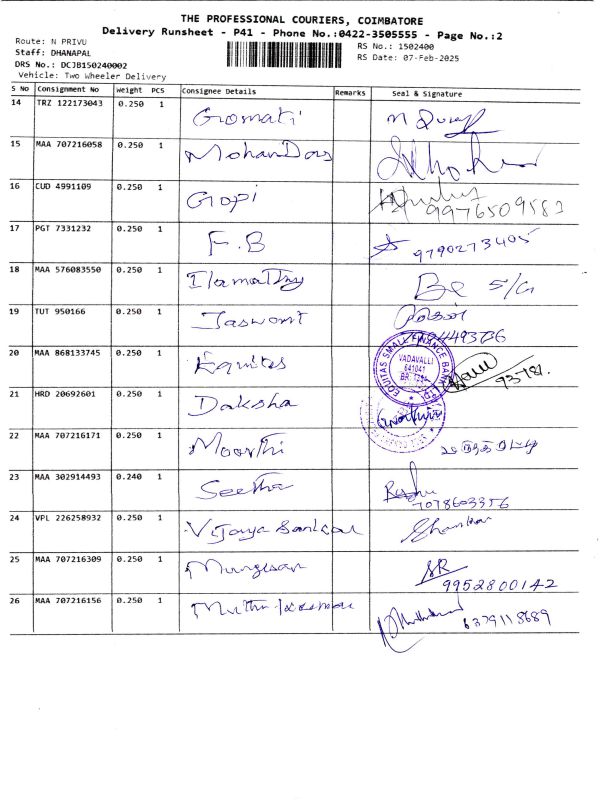 THE PROFESSIONAL COURIERS, COIMBATORE
Delivery Runsheet - P41 - Phone No.:0422-3505555 - Page No.:2
Route: N PRIVU
RS No.: 1502400
Staff: DHANAPAL
RS Date: 07-Feb-2025
DRS No.: DCJB150240002
Vehicle: Two Wheeler Delivery
S No Consignment No Weight PCS Consignee Details Remarks Seal & Signature
14 TRZ 122173043 0.250 1 Gomati
15 MAA 707216058 0.250 1 Mohan Das
16 CUD 4991109 0.250 1 Gopi
9976509583
17 PGT 7331232 0.250 1 F.B
9790273405
18 MAA 576083550 0.250 1 Ilamathy
19 TUT 950166 0.250 1 Jaswont
20 MAA 868133745 0.250 1 Equitas
EQUITAS SMALL FINANCE BANK LTD
VADAVALLI
641041
93781.
21 HRD 20692601 0.250 1 Daksha
22 MAA 707216171 0.250 1 Moorthi
23 MAA 302914493 0.240 1 Seetha
7078603356
24 VPL 226258932 0.250 1 Vijaya Sankar
Shankar
25 MAA 707216309 0.250 1 Murugesan
SR
9952800142
26 MAA 707216156 0.250 1
6379118689